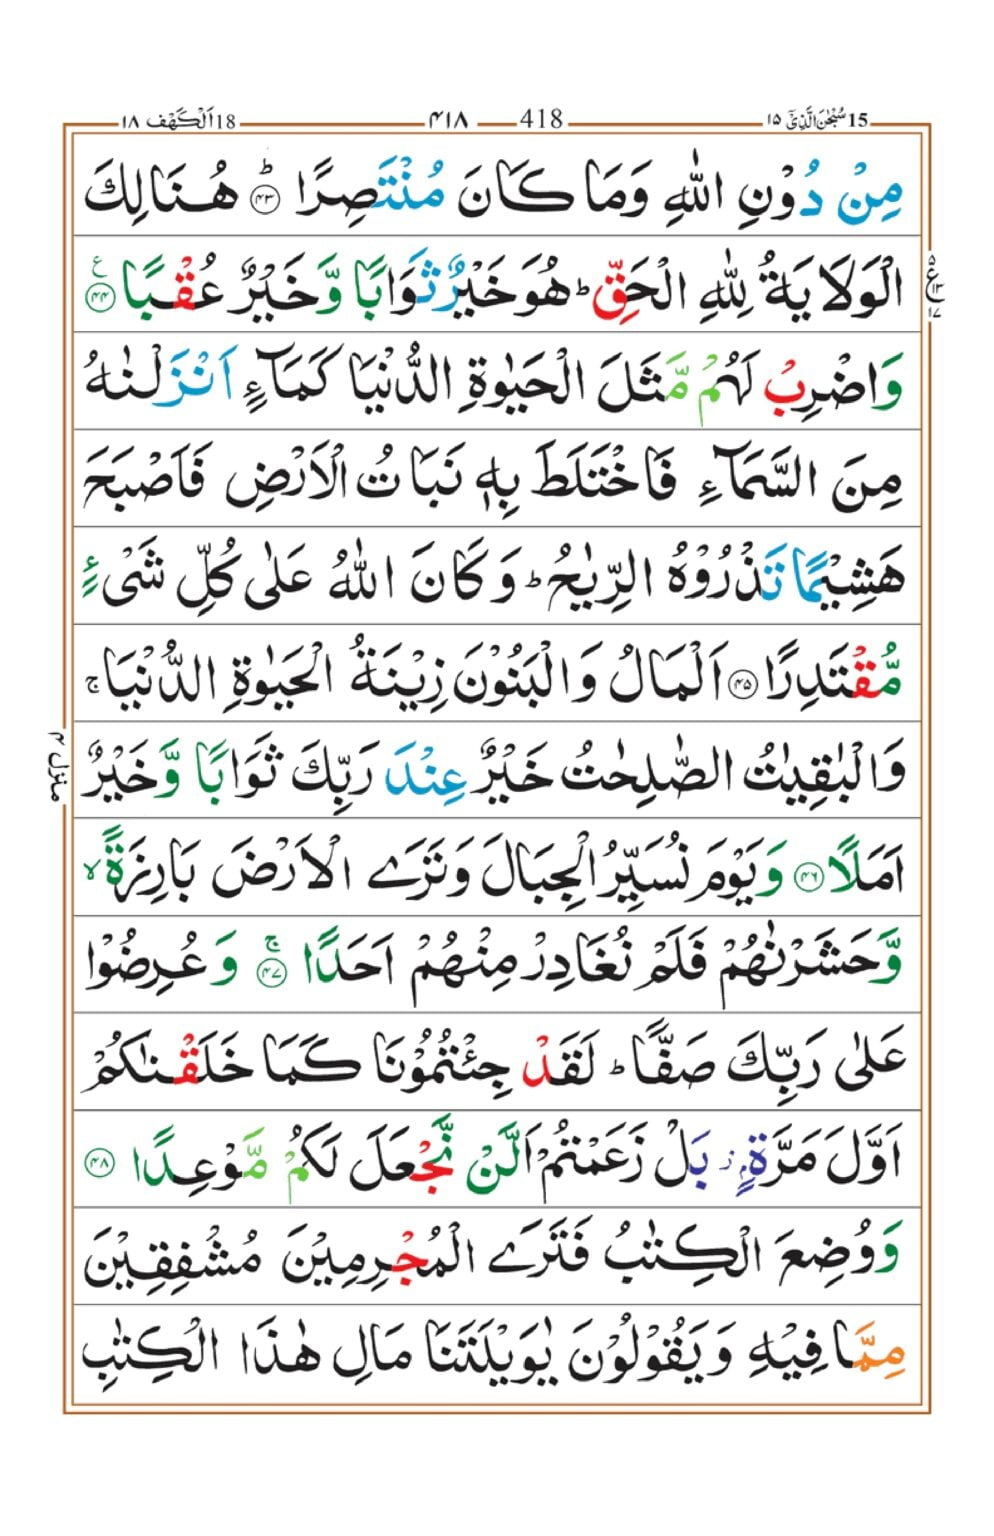 15 سُبْحٰنَ الَّذِیْۤ ١٥
418 ۴۱۸
18 اَلْكَهْف ١٨
مِنْ دُوْنِ اللّٰهِ وَمَا كَانَ مُنْتَصِرًا ؕ ﴿۴۳﴾ هُنَالِكَ
الْوَلَایَةُ لِلّٰهِ الْحَقِّ ؕ هُوَ خَیْرٌ ثَوَابًا وَّ خَیْرٌ عُقْبًا ﴿۴۴﴾ ع
ع ۵ ۱۳ ۱۷
وَاضْرِبْ لَهُمْ مَّثَلَ الْحَیٰوةِ الدُّنْیَا كَمَآءٍ اَنْزَلْنٰهُ
مِنَ السَّمَآءِ فَاخْتَلَطَ بِهٖ نَبَاتُ الْاَرْضِ فَاَصْبَحَ
هَشِیْمًا تَذْرُوْهُ الرِّیٰحُ ؕ وَ كَانَ اللّٰهُ عَلٰی كُلِّ شَیْءٍ
مُّقْتَدِرًا ﴿۴۵﴾ اَلْمَالُ وَالْبَنُوْنَ زِیْنَةُ الْحَیٰوةِ الدُّنْیَا ۚ
وَالْبٰقِیٰتُ الصّٰلِحٰتُ خَیْرٌ عِنْدَ رَبِّكَ ثَوَابًا وَّ خَیْرٌ
منزل ۴
اَمَلًا ﴿۴۶﴾ وَ یَوْمَ نُسَیِّرُ الْجِبَالَ وَ تَرَی الْاَرْضَ بَارِزَةً ۙ
وَّ حَشَرْنٰهُمْ فَلَمْ نُغَادِرْ مِنْهُمْ اَحَدًا ۚ ﴿۴۷﴾ وَ عُرِضُوْا
عَلٰی رَبِّكَ صَفًّا ؕ لَقَدْ جِئْتُمُوْنَا كَمَا خَلَقْنٰكُمْ
اَوَّلَ مَرَّةٍۭ ؗ بَلْ زَعَمْتُمْ اَلَّنْ نَّجْعَلَ لَكُمْ مَّوْعِدًا ﴿۴۸﴾
وَ وُضِعَ الْكِتٰبُ فَتَرَی الْمُجْرِمِیْنَ مُشْفِقِیْنَ
مِمَّا فِیْهِ وَ یَقُوْلُوْنَ یٰوَیْلَتَنَا مَالِ هٰذَا الْكِتٰبِ